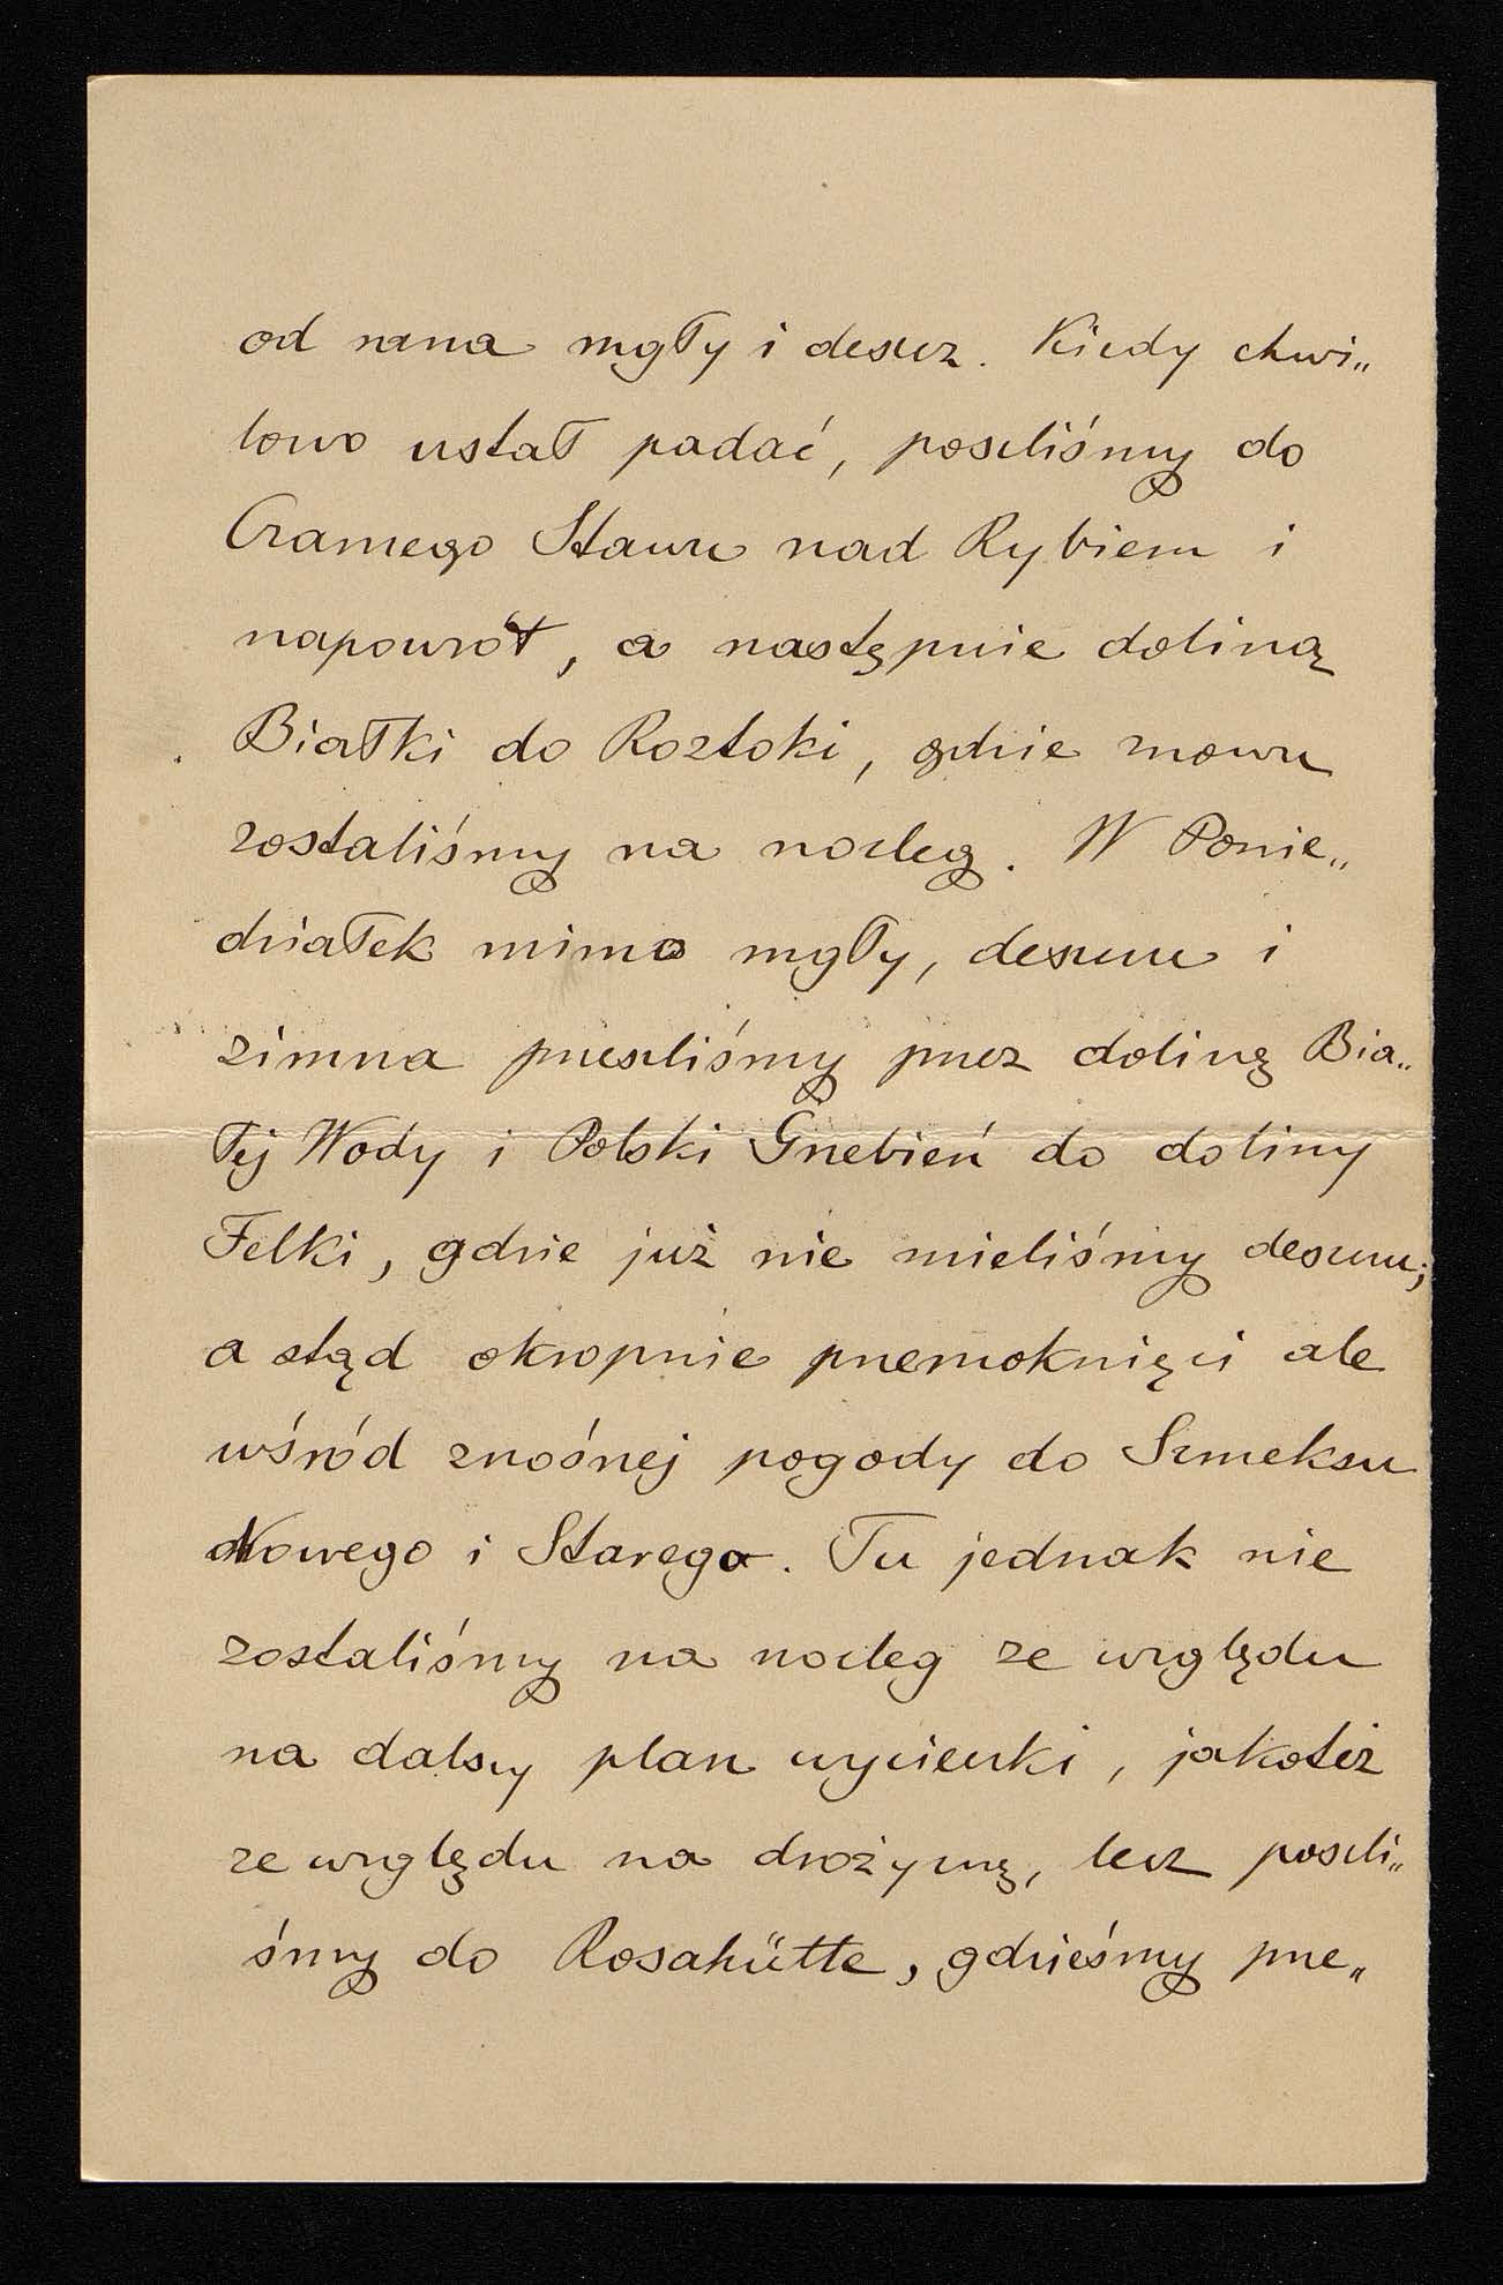 od rana mgły i deszcz. Kiedy chwi„
lowo ustał padać, poszliśmy do
Czarnego Stawu nad Rybiem i
napowrót, a następnie doliną
Białki do Roztoki, gdzie znowu
zostaliśmy na nocleg. W Ponie„
działek mimo mgły, deszczu i
zimna przeszliśmy przez dolinę Bia„
łej Wody i Polski Grzebień do doliny
Felki, gdzie już nie mieliśmy deszczu;
a stąd okropnie przemoknięci ale
wśród znośnej pogody do Szmeksu
Nowego i Starego. Tu jednak nie
zostaliśmy na nocleg ze względu
na dalszy plan wycieczki, jakoteż
ze względu na drożyznę, lecz poszli„
śmy do Rosahütte, gdzieśmy prze„